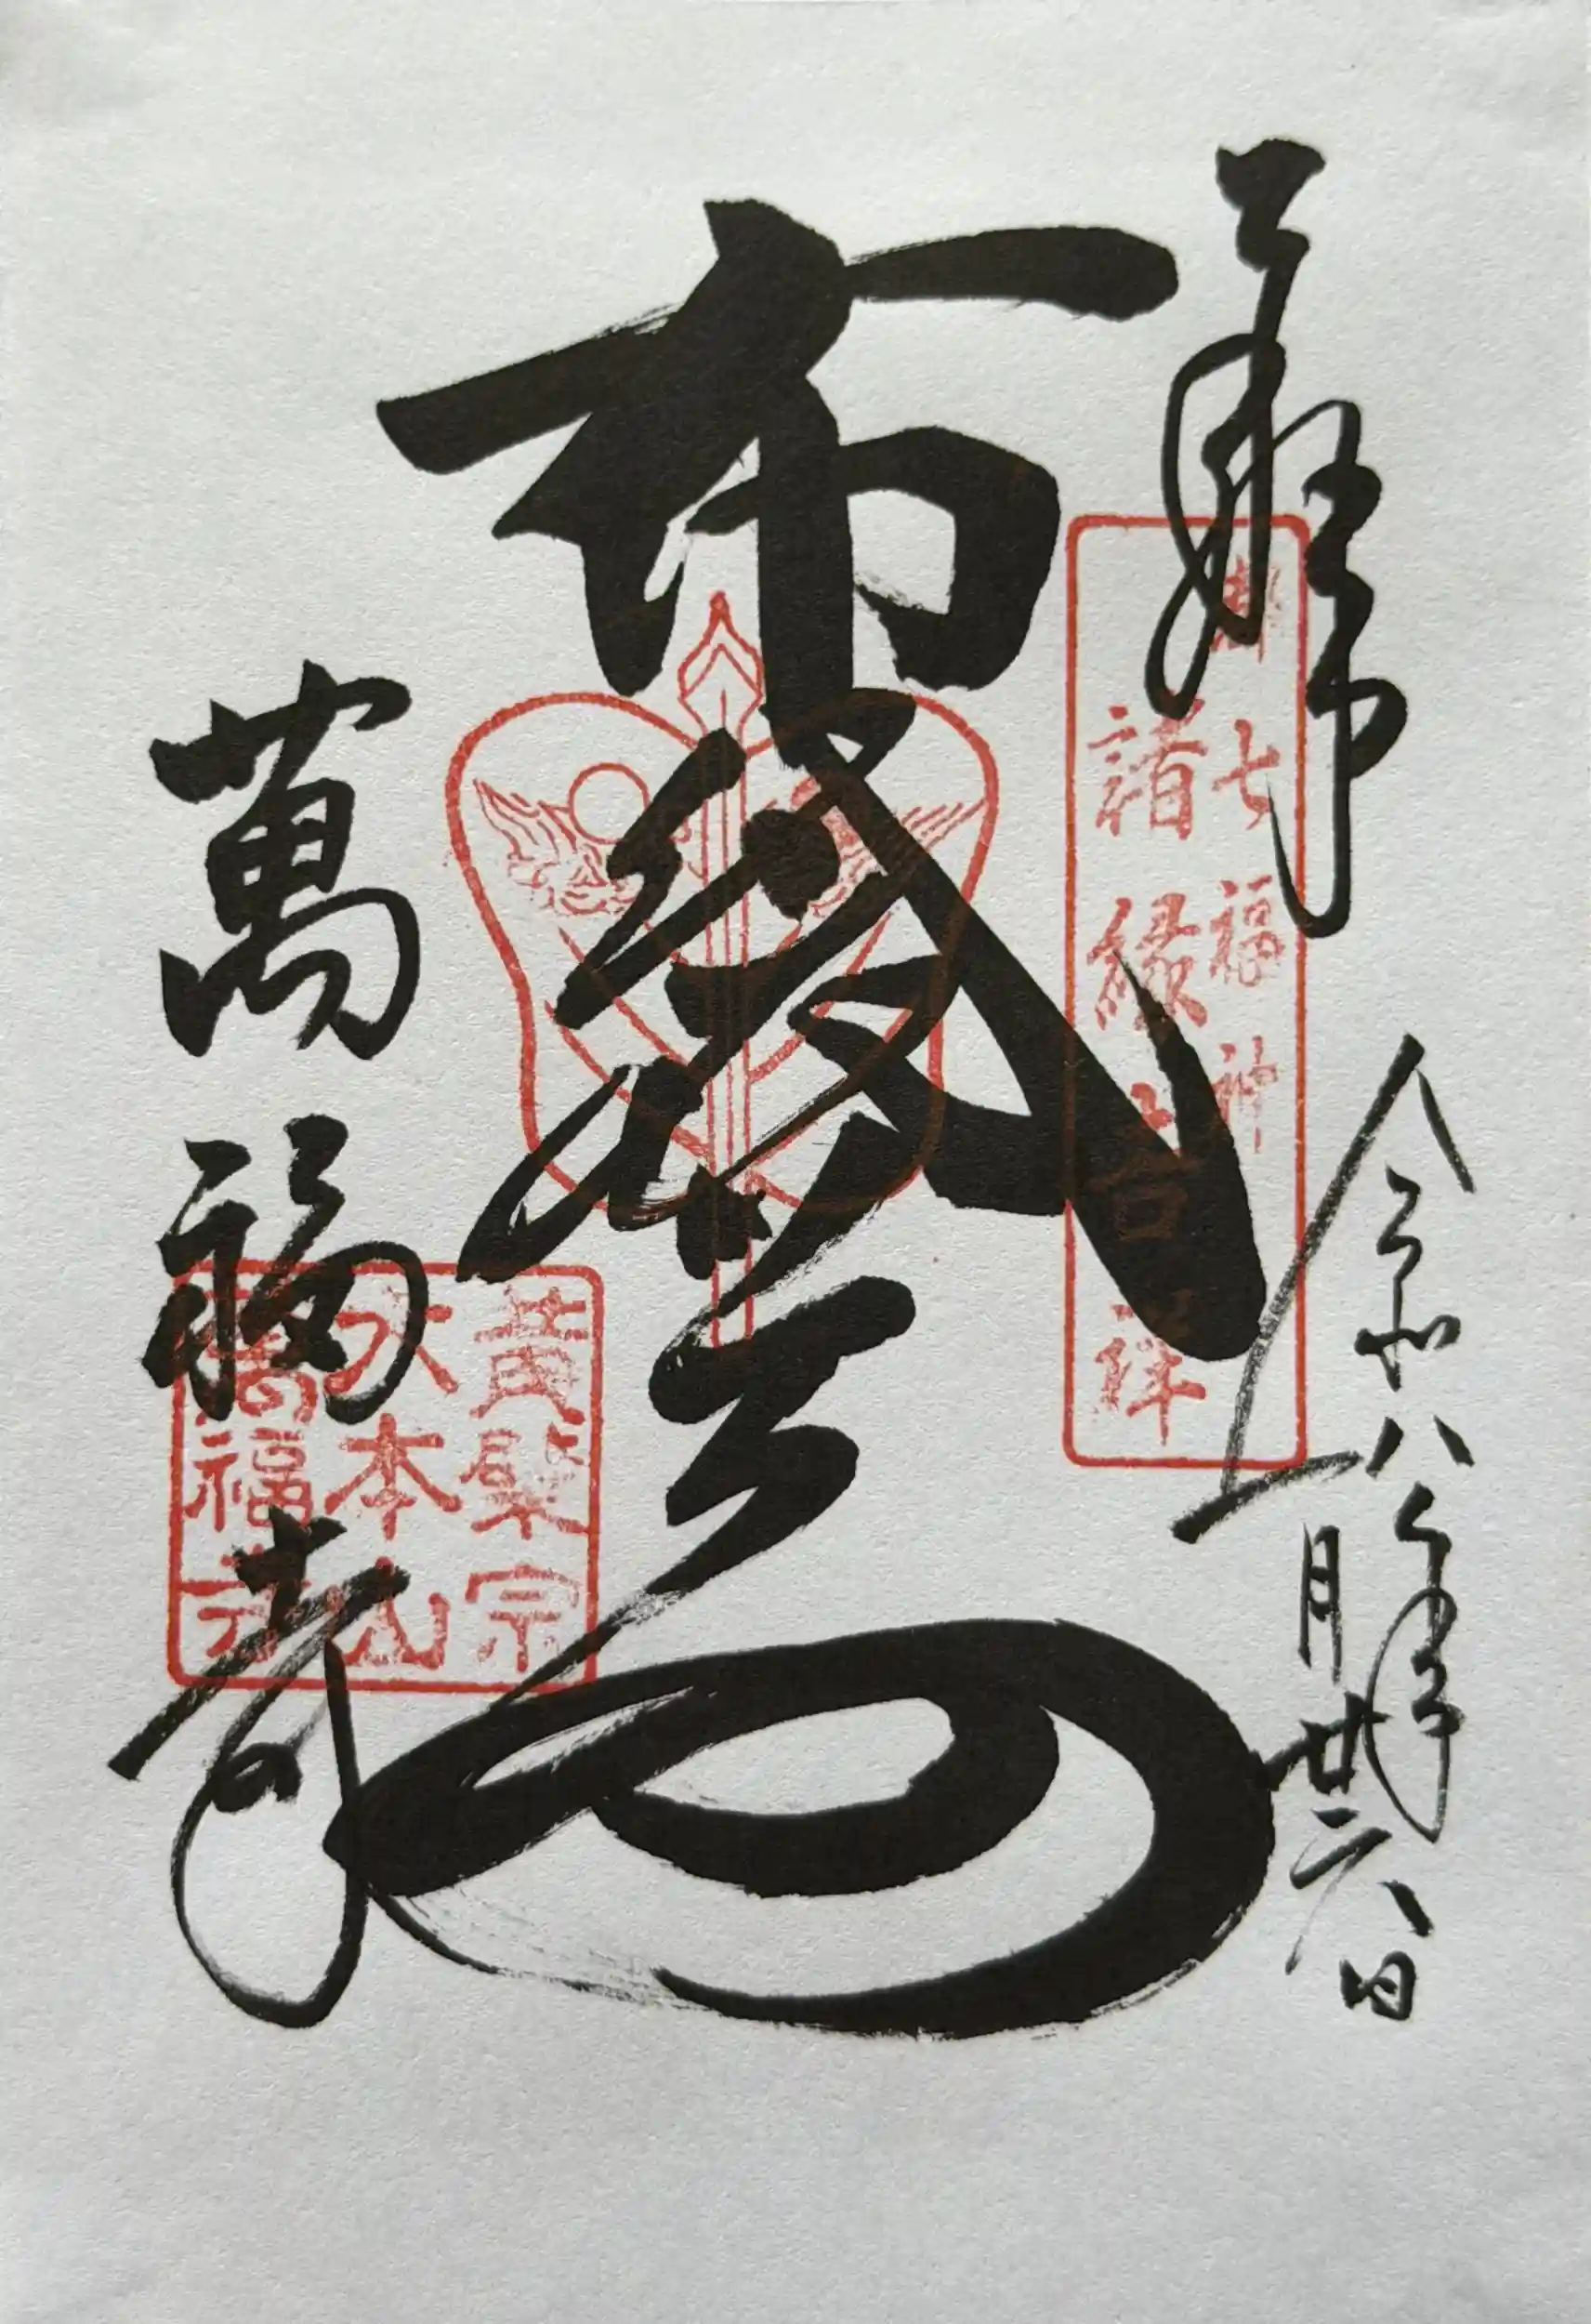 奉拝
令和八年
一月廿六日
都七福神
諸縁吉祥
布袋尊
萬福寺
黄檗宗
大本山
萬福寺